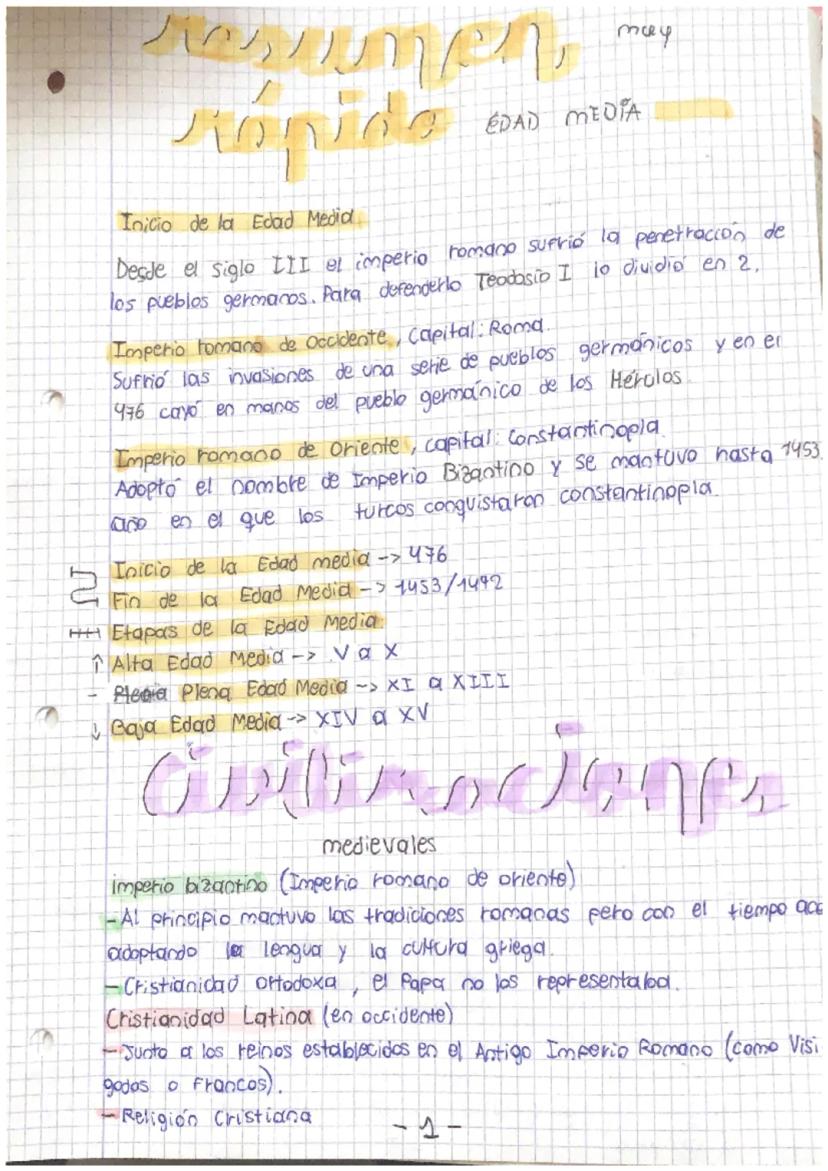 Resumen muy
rápido EDAD MEDIA
Inicio de la Edad Media
Desde el siglo III el imperio romano sufrió la penetración de
los pueblos germanos. Para defenderlo Teodosio I lo dividió en 2.
Imperio romano de Occidente, Capital: Roma.
Sufrió las invasiones de una serie de pueblos germánicos y en el
476 cayó en manos del pueblo germánico de los Hérulos.
Imperio romano de Oriente, capital: Constantinopla.
Adoptó el nombre de Imperio Bizantino y se mantuvo hasta 1453,
año en el que los turcos conquistaron constantinopla.
Inicio de la Edad media -> 476
Fin de la Edad Media -> 1453/1492
Etapas de la Edad Media:
↑ Alta Edad Media -> V a X
- Plena Edad Media -> XI a XIII
↓ Baja Edad Media -> XIV a XV
Civilizaciones
medievales
imperio bizantino (Imperio romano de oriente)
- Al principio mactuvo las tradiciones romanas pero con el tiempo aca
adoptando la lengua y la cultura griega.
- Cristianidad ortodoxa, el Papa no los representaba.
Cristianidad Latina (en occidente)
- Junto a los reinos establecidos en el Antigo Imperio Romano (como Visi
godos o Francos).
- Religión Cristiana
- 1 -